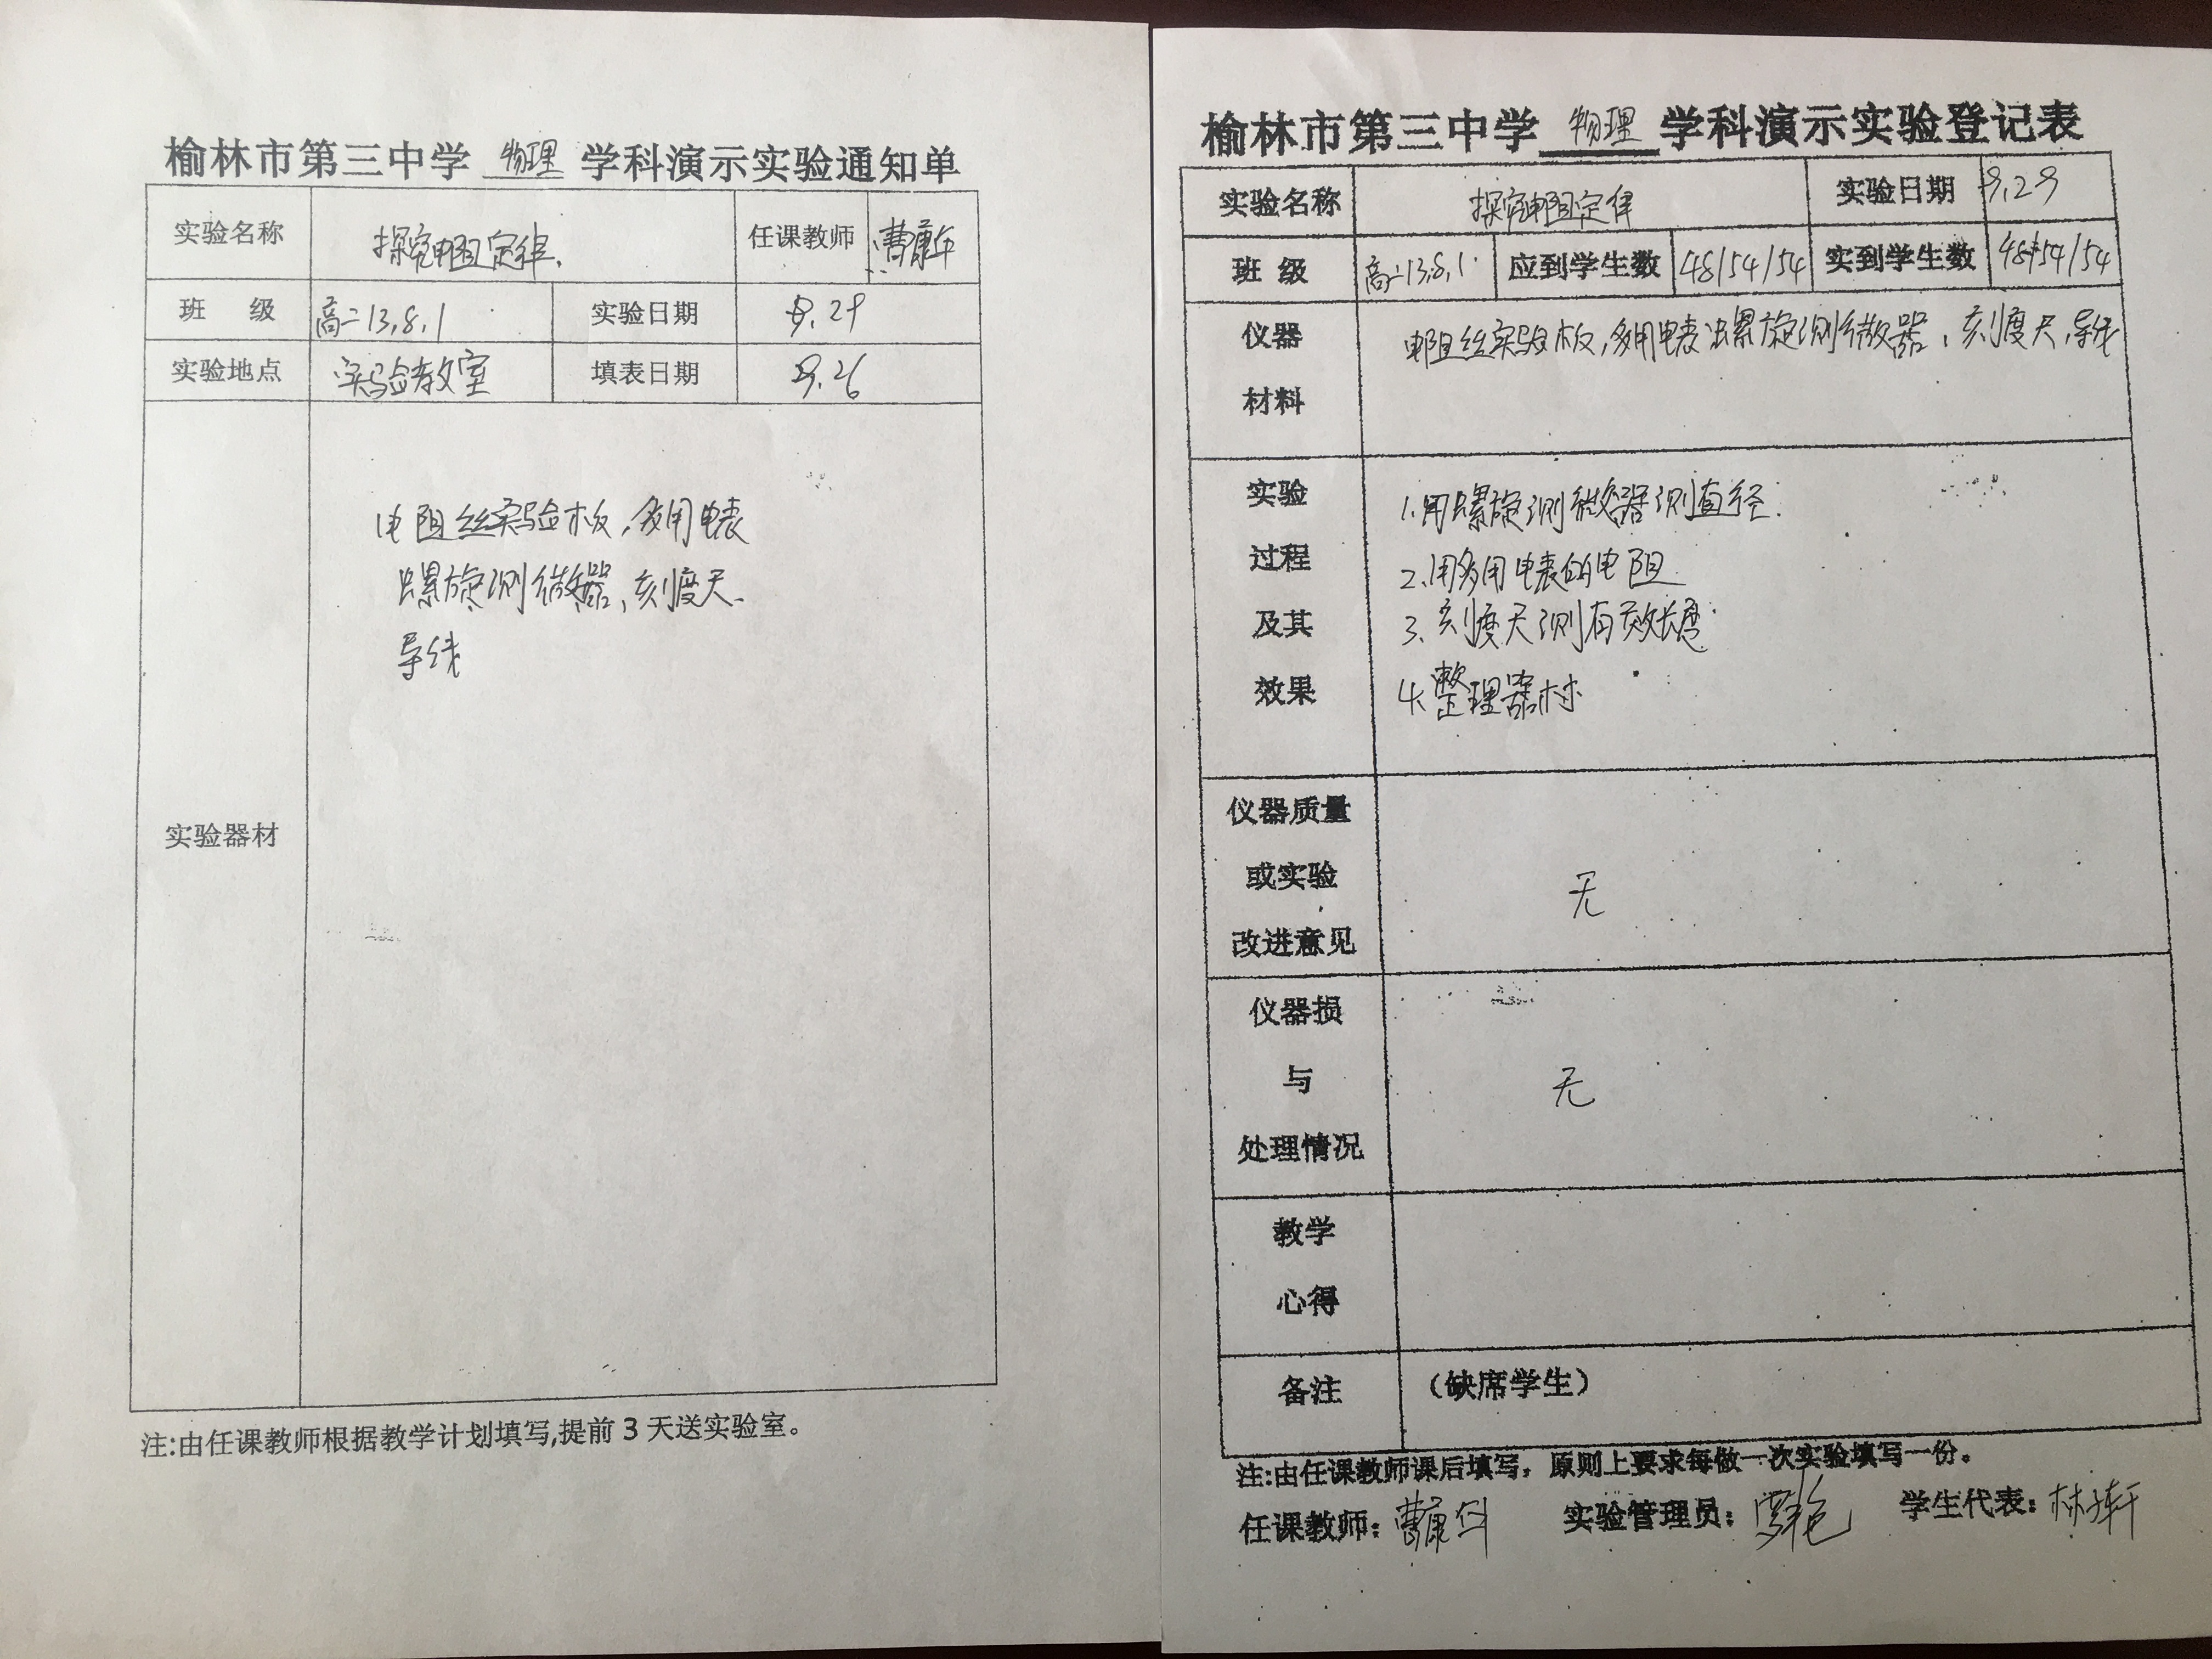 榆林市第三中学 物理 学科演示实验通知单
实验名称 探究电阻定律. 任课教师
班 级 高二13,8,1 实验日期 9.29
实验地点 实验教室 填表日期 9.26
实验器材
电阻丝实验板,多用电表
螺旋测微器,刻度尺.
导线
注:由任课教师根据教学计划填写,提前3天送实验室。
榆林市第三中学 物理 学科演示实验登记表
实验名称 探究电阻定律 实验日期 9.29
班 级 高二13,8,1. 应到学生数 48/54/54 实到学生数 48/54/54
仪器
材料
电阻丝实验板,多用电表 螺旋测微器,刻度尺,导线
实验
过程
及其
效果
1.用螺旋测微器测直径.
2.用多用电表的电阻
3.刻度尺测有效长度.
4.整理器材
仪器质量
或实验
改进意见
无
仪器损
与
处理情况
无
教学
心得
备注 (缺席学生)
注:由任课教师课后填写,原则上要求每做一次实验填写一份。
任课教师: 实验管理员: 学生代表: